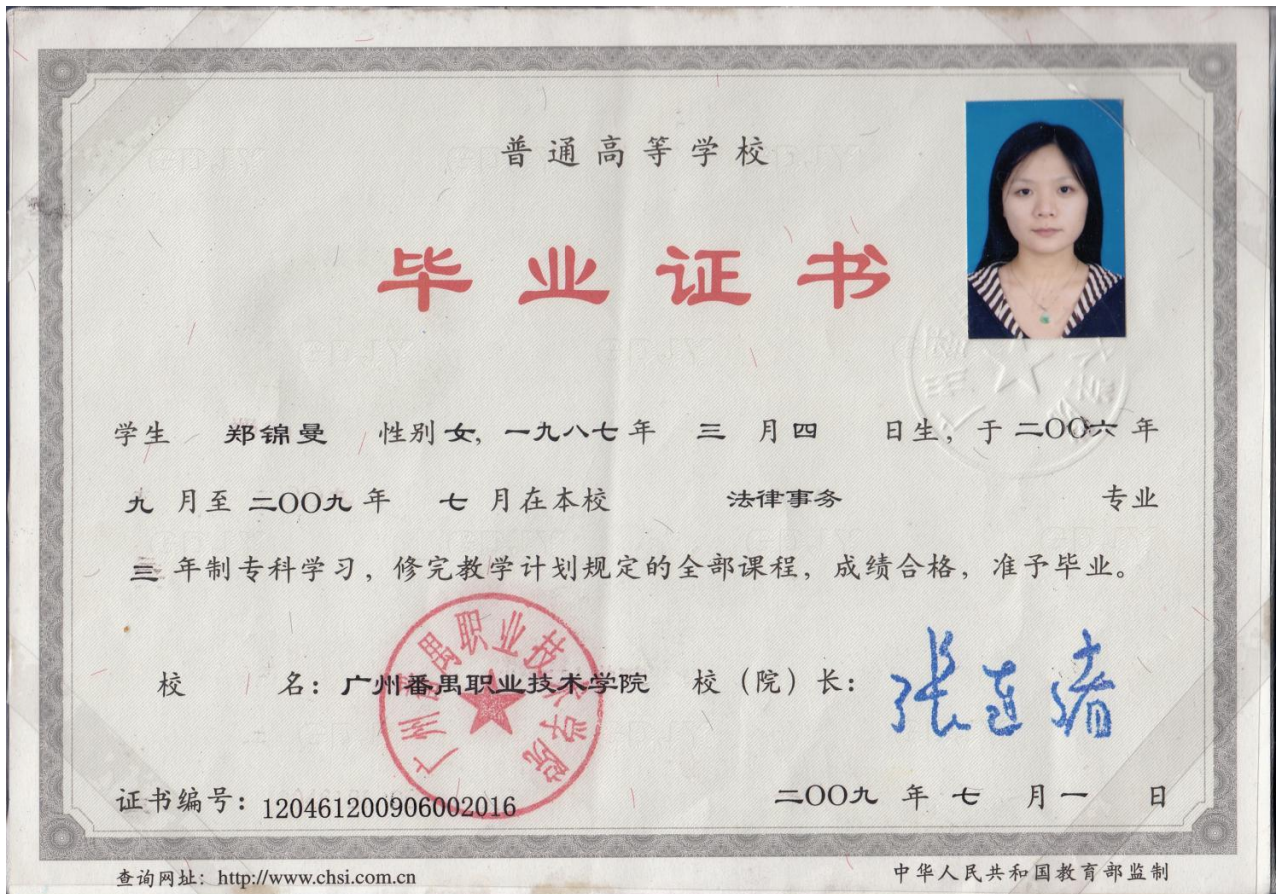 普通高等学校
毕业证书
学生 郑锦曼 性别 女, 一九八七 年 三 月 四 日生, 于 二〇〇六 年
九 月至 二〇〇九 年 七 月在本校 法律事务 专业
三 年制专科学习, 修完教学计划规定的全部课程, 成绩合格, 准予毕业。
广州番禺职业技术学院
校 名: 广州番禺职业技术学院 校 (院) 长: 张连绪
证书编号: 120461200906002016 二〇〇九 年 七 月 一 日
查询网址: http://www.chsi.com.cn 中华人民共和国教育部监制